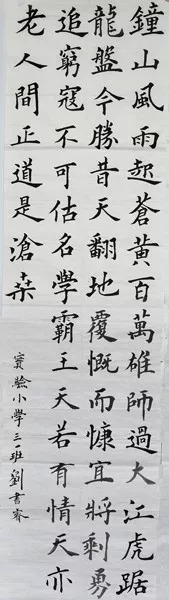 鐘山風雨起蒼黃百萬雄師過大江虎踞
龍盤今勝昔天翻地覆慨而慷宜將剩勇
追窮寇不可估名學霸王天若有情天亦
老人間正道是滄桑
實驗小學三一班劉書